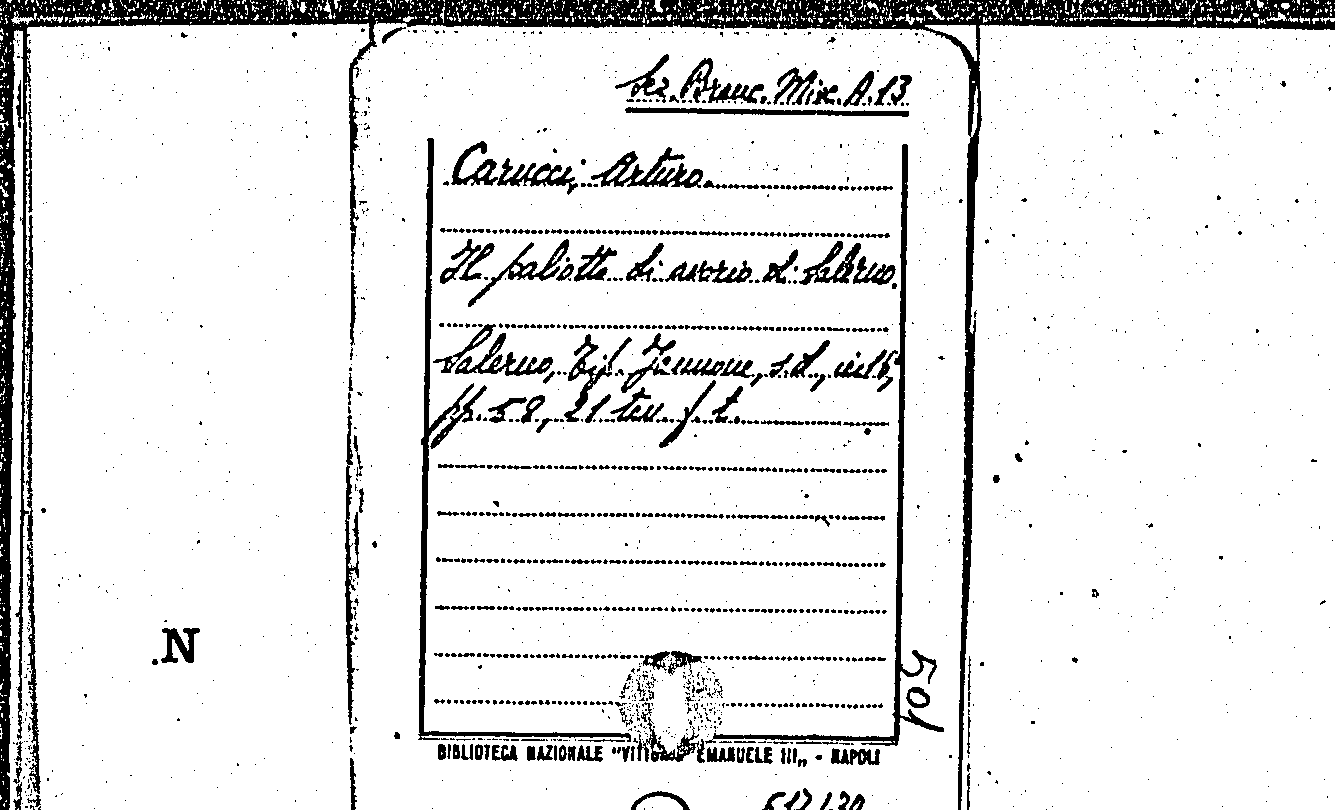 Sez. Branc. Misc. A. 13
Carucci, Arturo.
Il paliotto di avorio di Salerno.
Salerno, Tip. Jannone, s.d., in 16°,
pp. 58, 21 tav. f. t.
.N
501
BIBLIOTECA NAZIONALE "VITTORIO EMANUELE III„ - NAPOLI